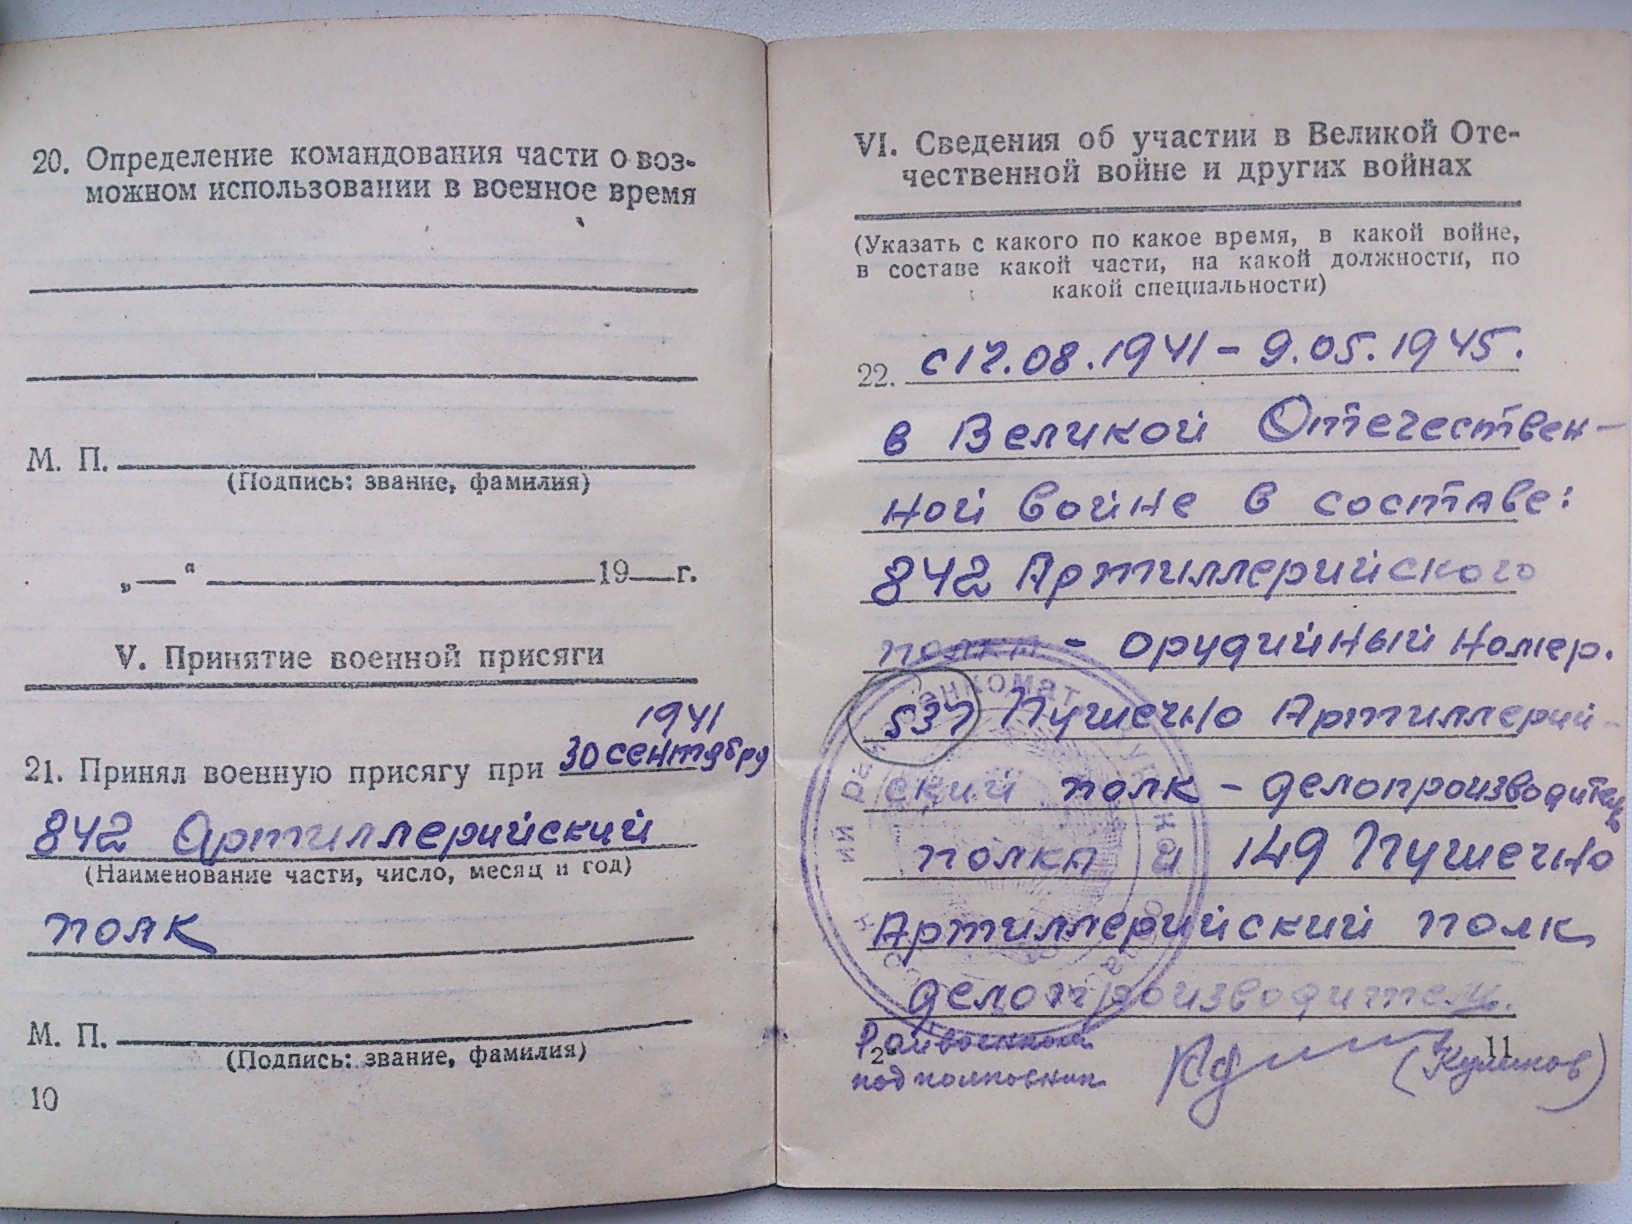 20. Определение командования части о воз-
можном использовании в военное время
М. П.
(Подпись: звание, фамилия)
„—“ 19—г.
V. Принятие военной присяги
1941
21. Принял военную присягу при 30 сентября
842 Артиллерийский
(Наименование части, число, месяц и год)
полк
М. П.
(Подпись: звание, фамилия)
10
VI. Сведения об участии в Великой Оте-
чественной войне и других войнах
(Указать с какого по какое время, в какой войне,
в составе какой части, на какой должности, по
какой специальности)
22. с 17.08.1941 - 9.05.1945.
в Великой Отечествен-
ной войне в составе:
842 Артиллерийского
полка - орудийный номер.
537 Пушечно Артиллерий-
ский полк - делопроизводитель
полка и 149 Пушечно
Артиллерийский полк
делопроизводитель.
Райвоенком
2* 11
подполковник (Куликов)